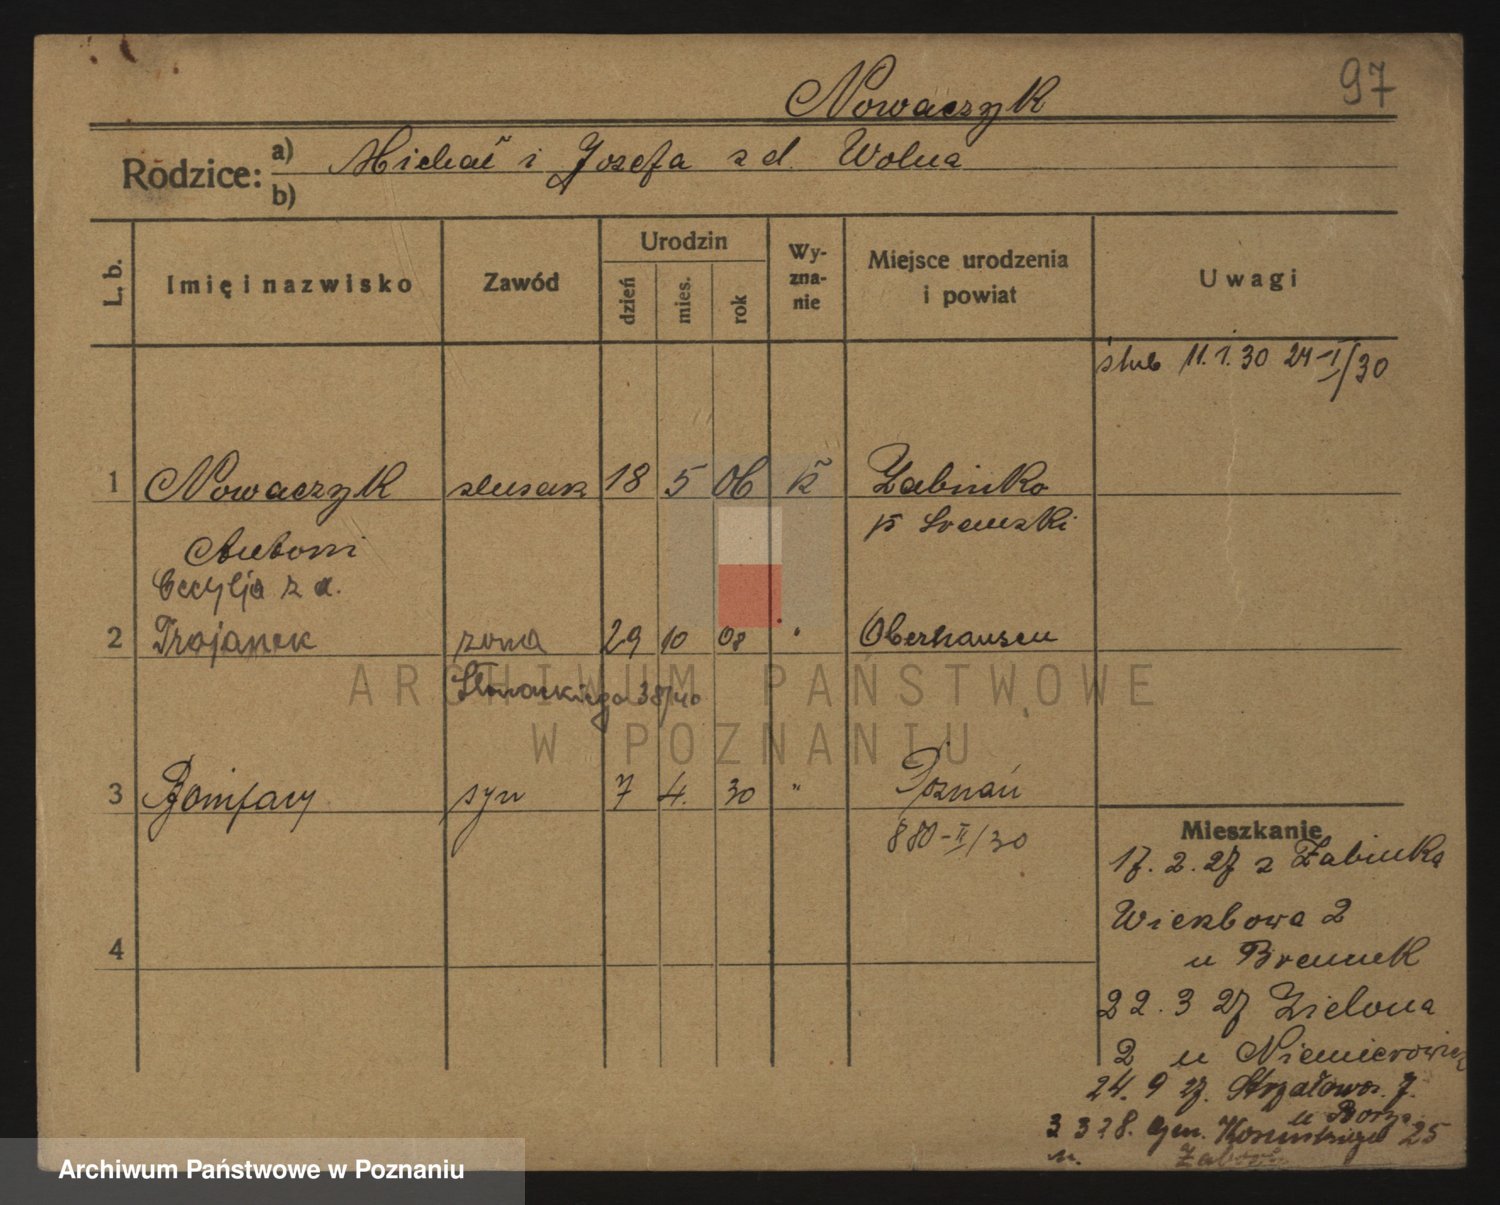 Nowaczyk
97
Rodzice: a) Michał i Jozefa z d. Wolna
b)
L. b.
Imię i nazwisko
Zawód
Urodzin
dzień
mies.
rok
Wy-
zna-
nie
Miejsce urodzenia
i powiat
Uwagi
ślub 11.1.30 24-I/30
1 Nowaczyk ślusarz 18 5 06 k Żabinko
p Śremski
Antoni
Cecylja z d.
2 Trojanek żona 29 10 08 " Oberhausen
Słowackiego 38/40
ARCHIWUM PAŃSTWOWE
W POZNANIU
3 Bonifacy syn 7 4. 30 " Poznań
880-II/30
Mieszkanie
17. 2. 27 z Żabinka
Wierzbowa 2
4
u
22. 3 27 Zielona
2 u Niemierowicz
24. 9 27. Strzałowa 7.
u
3 3 28. Gen. Kosińskiego 25
u.
Archiwum Państwowe w Poznaniu